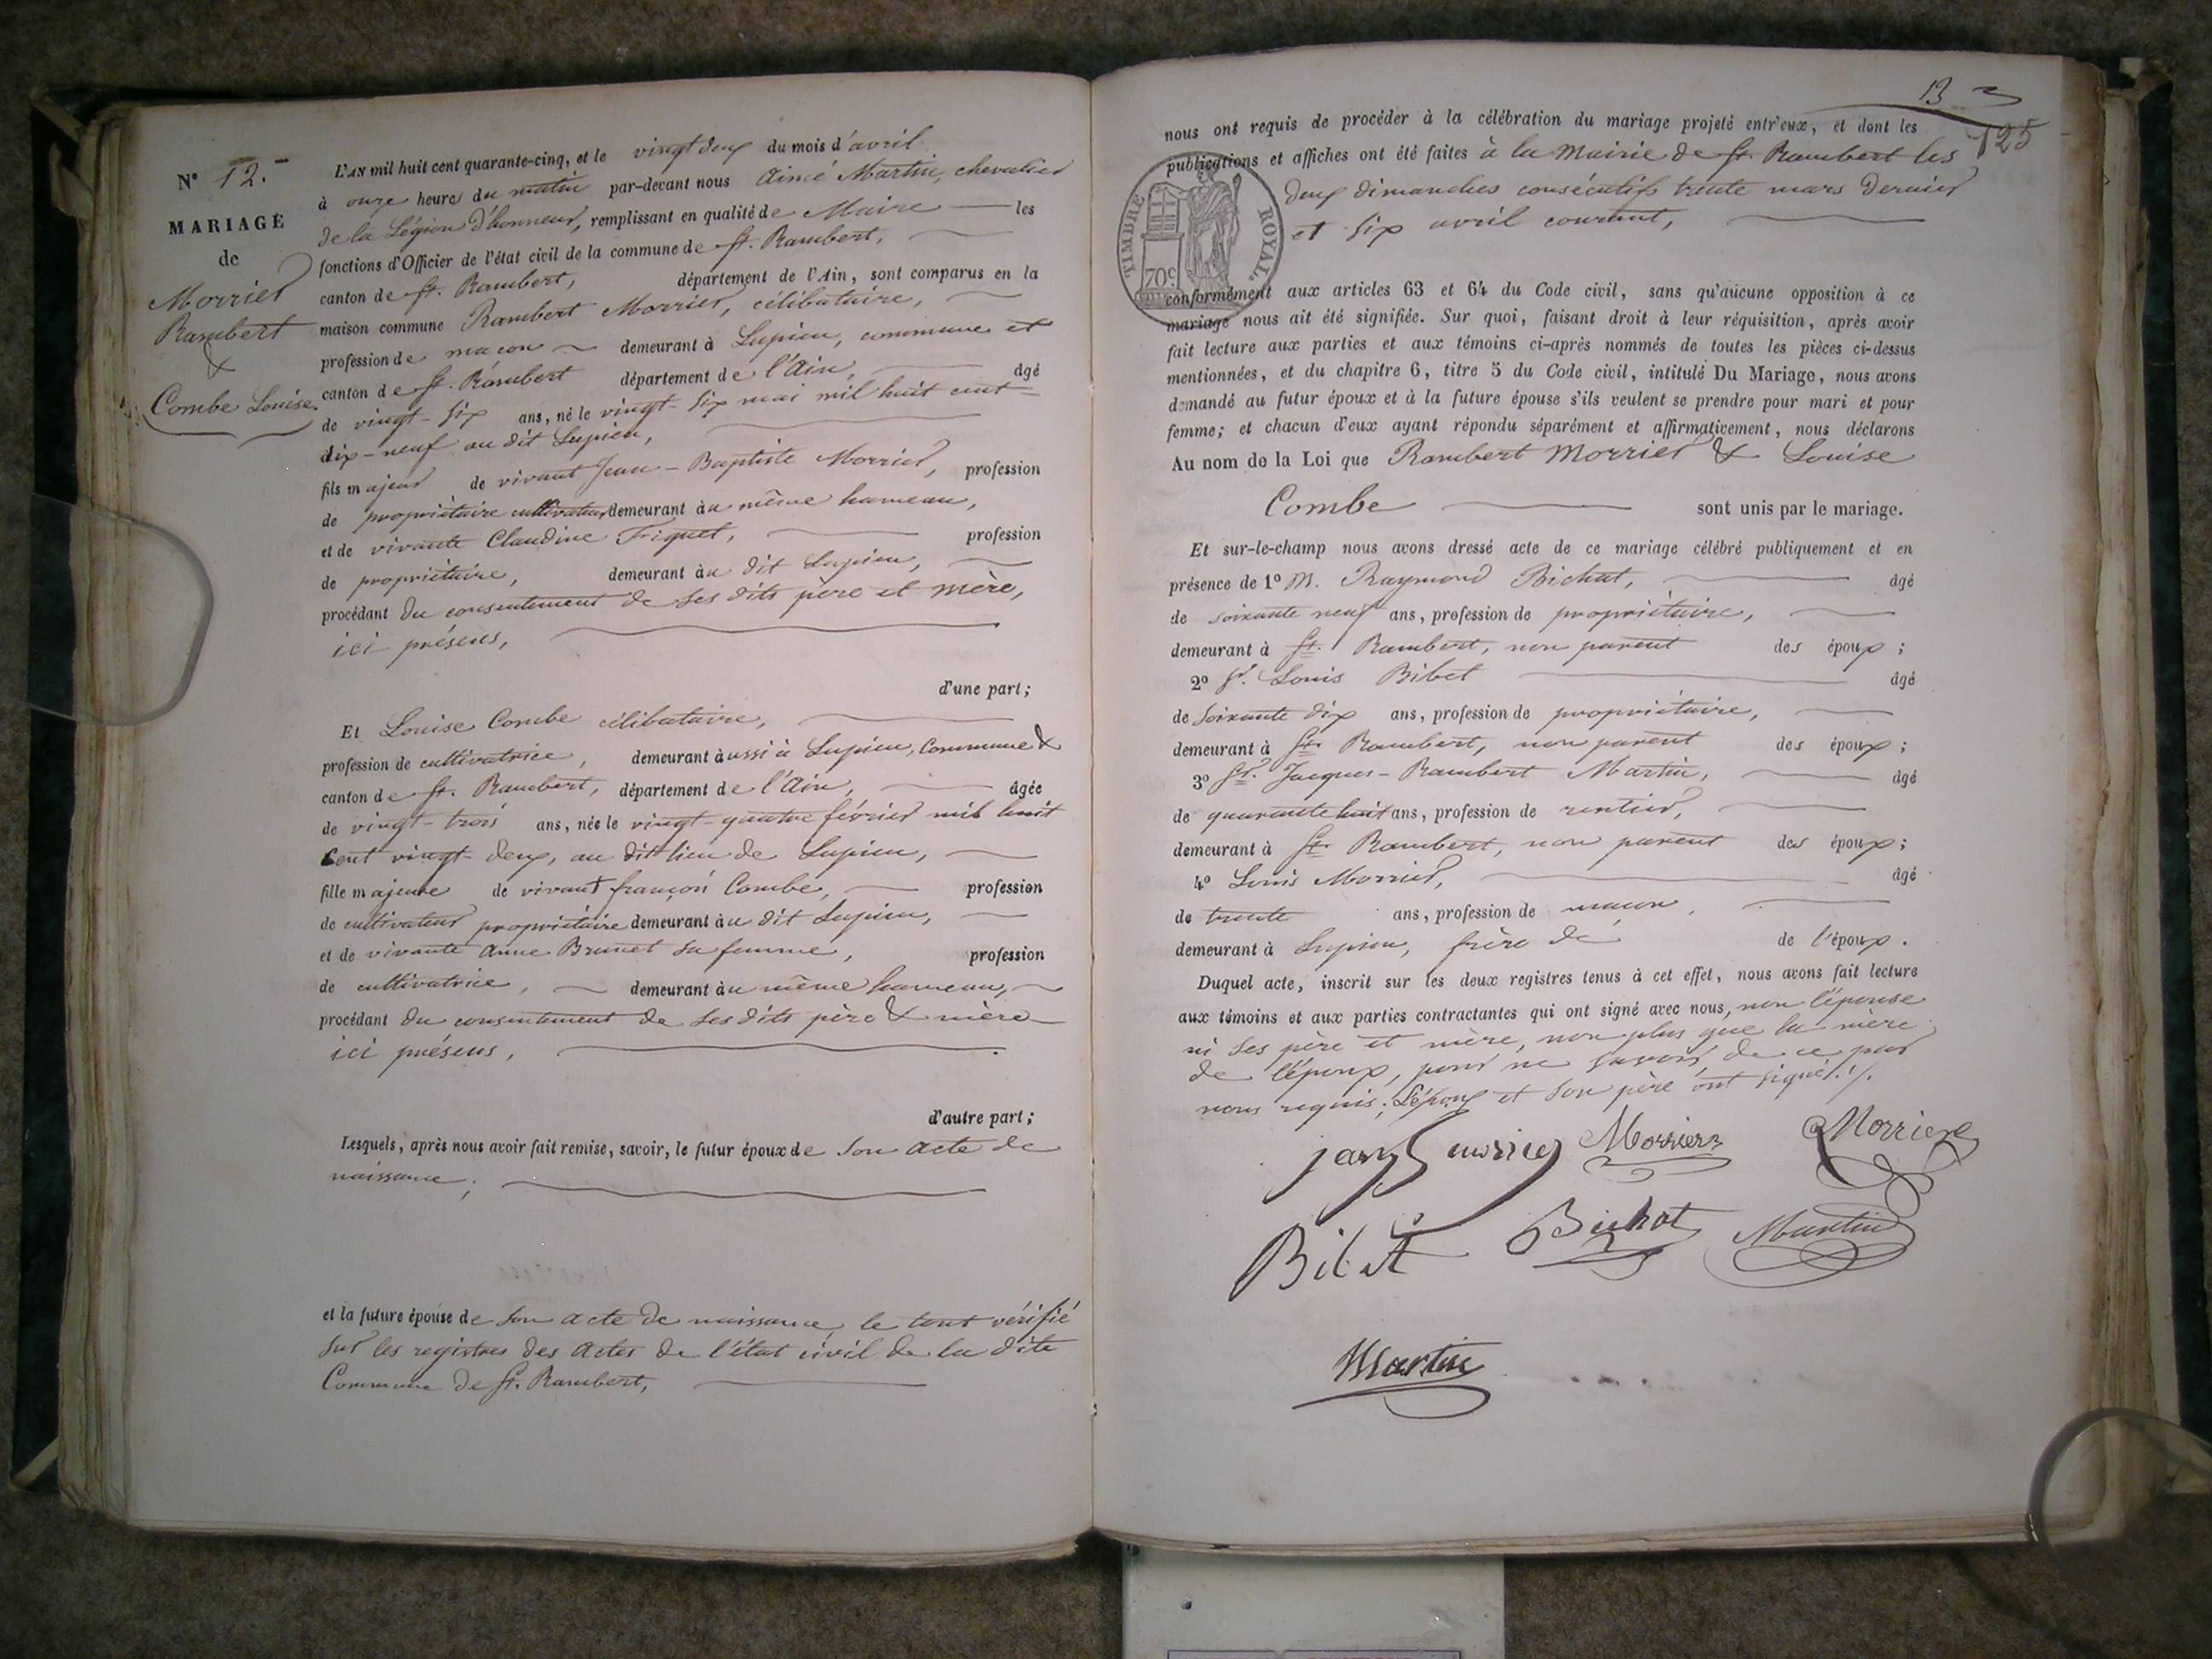 N° 12.
MARIAGE
de
Morrier
Rambert
&
Combe Louise.
L'AN mil huit cent quarante-cinq, et le vingt deux du mois d'avril
à onze heure du matin par-devant nous Aimé Martin, chevalier
de la Légion d'honneur, remplissant en qualité de Maire les
fonctions d'Officier de l'état civil de la commune de St. Rambert,
canton de St. Rambert, département de l'Ain, sont comparus en la
maison commune Rambert Morrier, célibataire,
profession de maçon demeurant à Lupieu, commune et
canton de St. Rambert département de l'Ain, âgé
de vingt-six ans, né le vingt-six mai mil huit cent
dix-neuf au dit Lupieu,
fils majeur de vivant Jean-Baptiste Morrier, profession
de propriétaire cultivateur demeurant au même hameau,
et de vivante Claudine Friquet, profession
de propriétaire, demeurant au dit Lupieu,
procédant du consentement de ses dits père et mère,
ici présens,
d'une part;
Et Louise Combe célibataire,
profession de cultivatrice, demeurant aussi à Lupieu, Commune &
canton de St. Rambert, département de l'Ain, âgée
de vingt-trois ans, née le vingt-quatre février mil huit
cent vingt-deux, au dit lieu de Lupieu,
fille majeure de vivant françois Combe, profession
de cultivateur propriétaire demeurant au dit Lupieu,
et de vivante Anne Brunet sa femme, profession
de cultivatrice, demeurant au même hameau,
procédant du consentement de ses dits père & mère
ici présens,
d'autre part;
Lesquels, après nous avoir fait remise, savoir, le futur époux de son acte de
naissance;
et la future épouse de son acte de naissance, le tout vérifié
sur les registres des actes de l'état civil de la dite
Commune de St. Rambert,
13
125
nous ont requis de procéder à la célébration du mariage projeté entr'eux, et dont les
publications et affiches ont été faites à la Mairie de St. Rambert les
deux dimanches consécutifs trente mars dernier
et six avril courant,
TIMBRE ROYAL.
70c
conformément aux articles 63 et 64 du Code civil, sans qu'aucune opposition à ce
mariage nous ait été signifiée. Sur quoi, faisant droit à leur réquisition, après avoir
fait lecture aux parties et aux témoins ci-après nommés de toutes les pièces ci-dessus
mentionnées, et du chapitre 6, titre 5 du Code civil, intitulé Du Mariage, nous avons
demandé au futur époux et à la future épouse s'ils veulent se prendre pour mari et pour
femme; et chacun d'eux ayant répondu séparément et affirmativement, nous déclarons
Au nom de la Loi que Rambert Morrier & Louise
Combe sont unis par le mariage.
Et sur-le-champ nous avons dressé acte de ce mariage célébré publiquement et en
présence de 1° M. Raymond Bichat, âgé
de soixante neuf ans, profession de propriétaire,
demeurant à St. Rambert, non parent des époux;
2° Sr. Louis Bibet âgé
de soixante dix ans, profession de propriétaire,
demeurant à St. Rambert, non parent des époux;
3° Sr. Jacques-Rambert Martin, âgé
de quarante huit ans, profession de rentier,
demeurant à St. Rambert, non parent des époux;
4° Louis Morrier, âgé
de trente ans, profession de maçon,
demeurant à Lupieu, frère de de l'époux.
Duquel acte, inscrit sur les deux registres tenus à cet effet, nous avons fait lecture
aux témoins et aux parties contractantes qui ont signé avec nous, non l'épouse
ni ses père et mère, non plus que la mère
de l'époux, pour ne savoir, de ce par
nous requis; L'époux et son père ont signé./.
Morrier Morrier
Bibet Bichat Martin
Martin